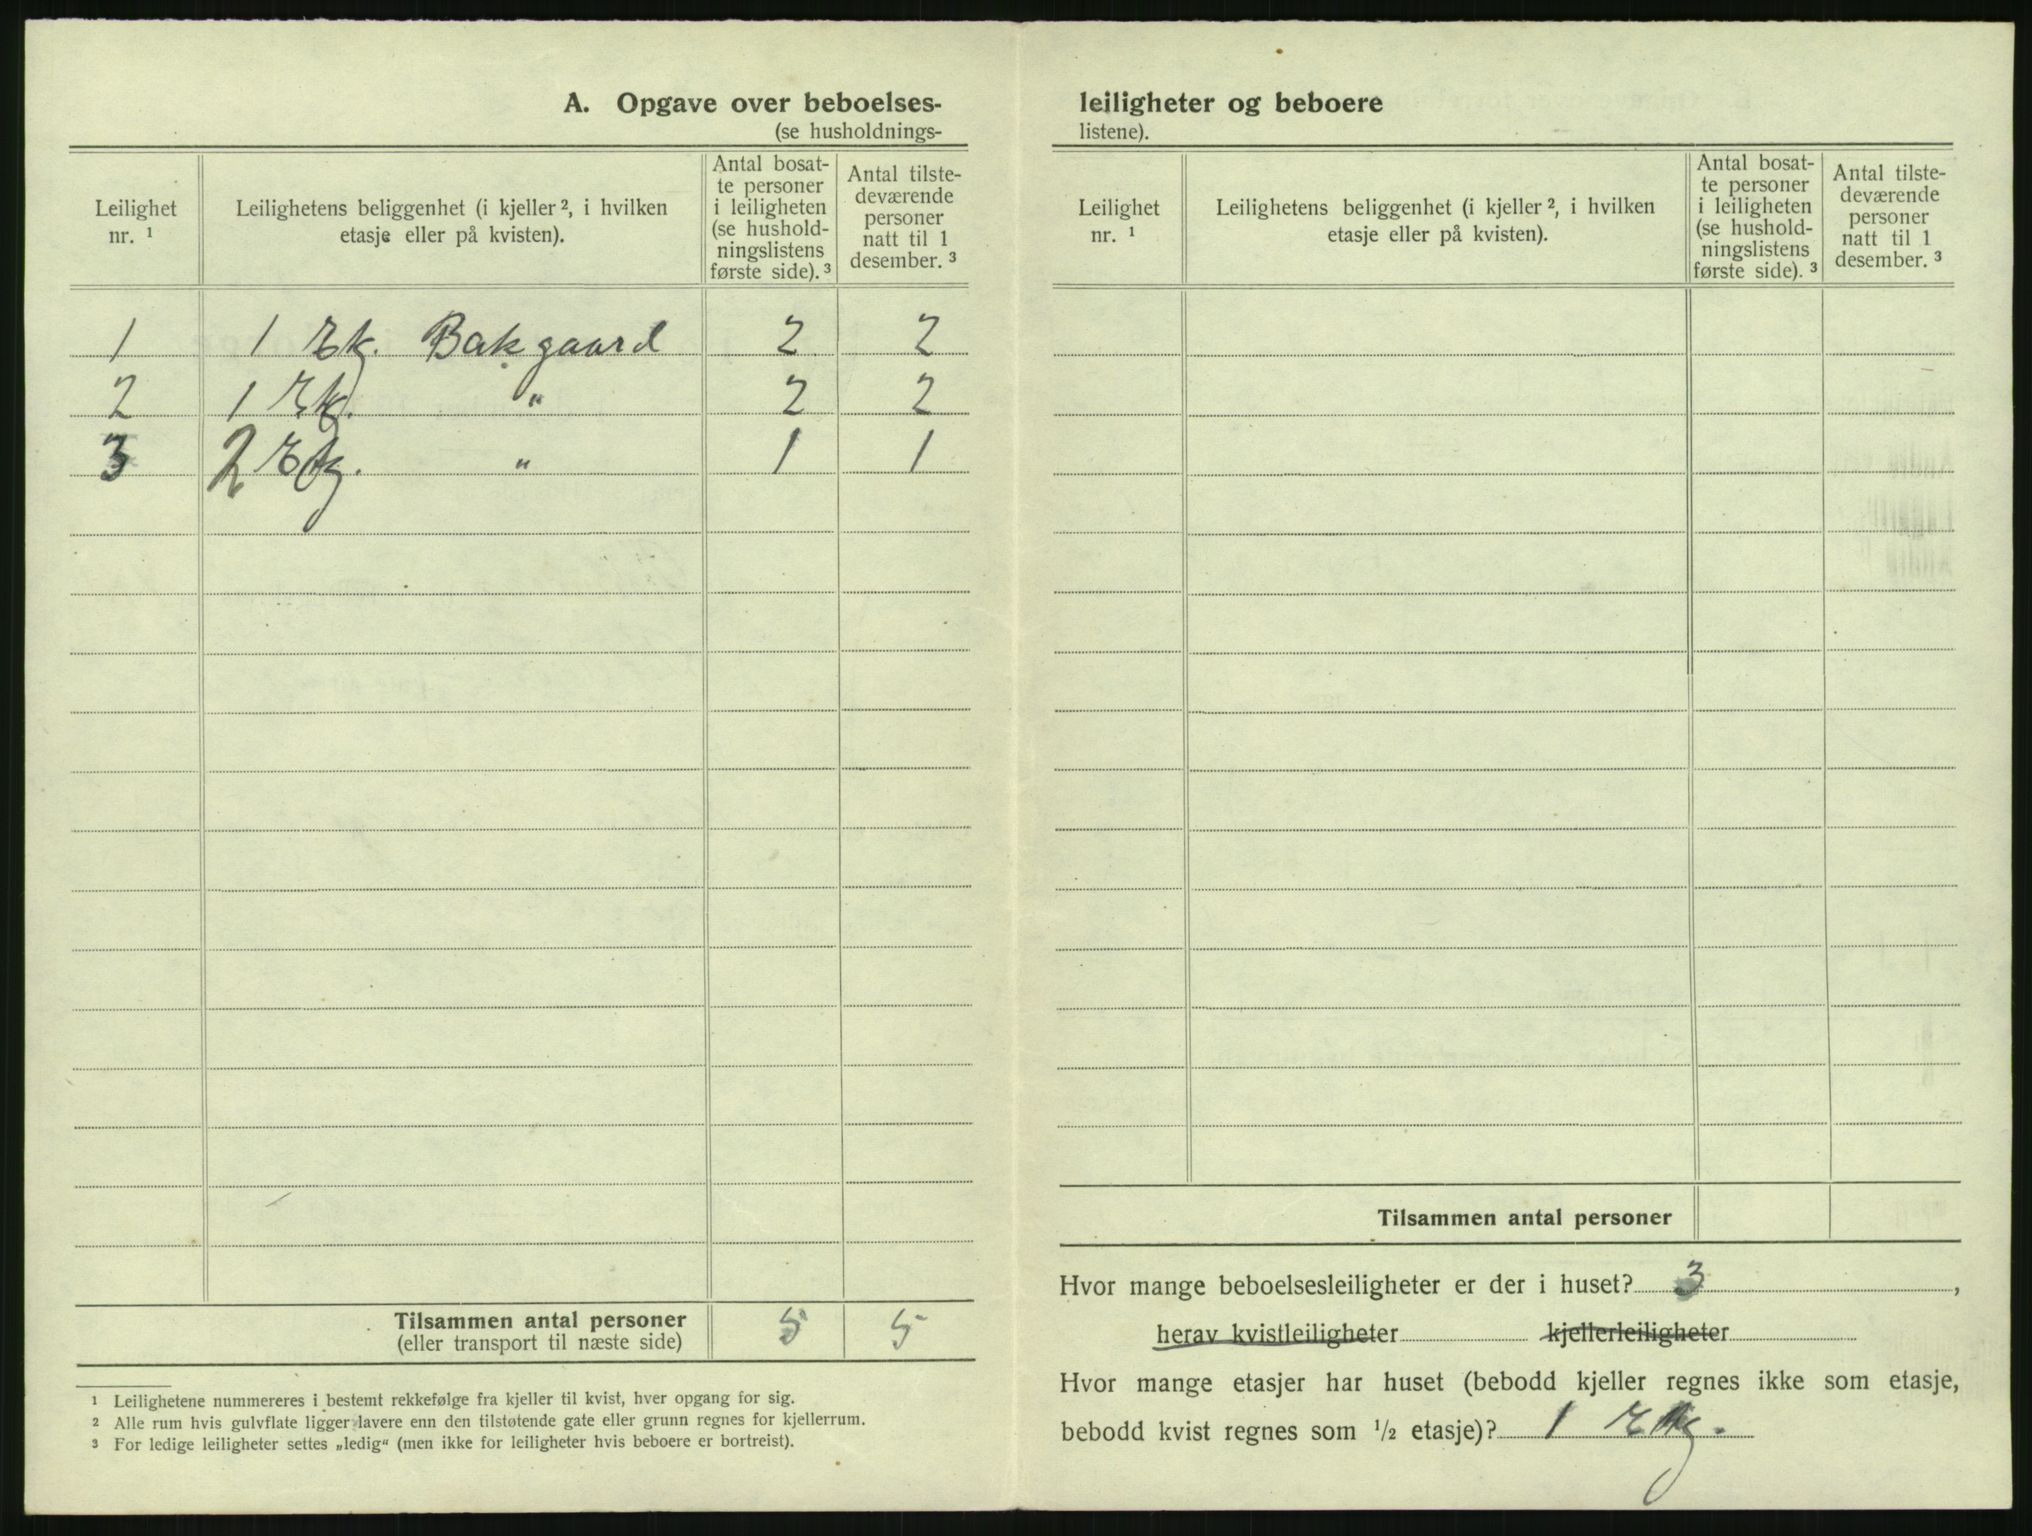 A. Opgave over beboelses-
(se husholdnings-
Leilighet
nr. 1
Leilighetens beliggenhet (i kjeller 2, i hvilken
etasje eller på kvisten).
Antal bosat-
te personer
i leiligheten
(se hushold-
ningslistens
første side). 3
Antal tilste-
deværende
personer
natt til 1
desember. 3
1 1 Etg. Bakgaard 2 2
2 1 Etg. " 2 2
3 2 Etg. " 1 1
Tilsammen antal personer 5 5
(eller transport til næste side)
1 Leilighetene nummereres i bestemt rekkefølge fra kjeller til kvist, hver opgang for sig.
2 Alle rum hvis gulvflate ligger lavere enn den tilstøtende gate eller grunn regnes for kjellerrum.
3 For ledige leiligheter settes „ledig“ (men ikke for leiligheter hvis beboere er bortreist).
leiligheter og beboere
listene).
Leilighet
nr. 1
Leilighetens beliggenhet (i kjeller 2, i hvilken
etasje eller på kvisten).
Antal bosat-
te personer
i leiligheten
(se hushold-
ningslistens
første side). 3
Antal tilste-
deværende
personer
natt til 1
desember. 3
Tilsammen antal personer
Hvor mange beboelsesleiligheter er der i huset? 3,
herav kvistleiligheter kjellerleiligheter
Hvor mange etasjer har huset (bebodd kjeller regnes ikke som etasje,
bebodd kvist regnes som 1/2 etasje)? 1 Etg.